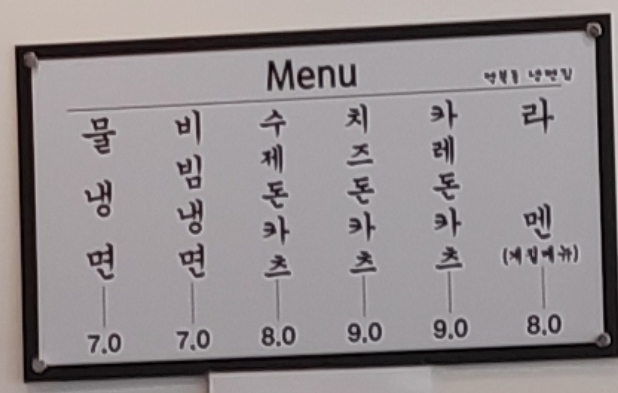 Menu
물냉면
7.0
비빔냉면
7.0
수제돈카츠
8.0
치즈돈카츠
9.0
카레돈카츠
9.0
라멘
8.0